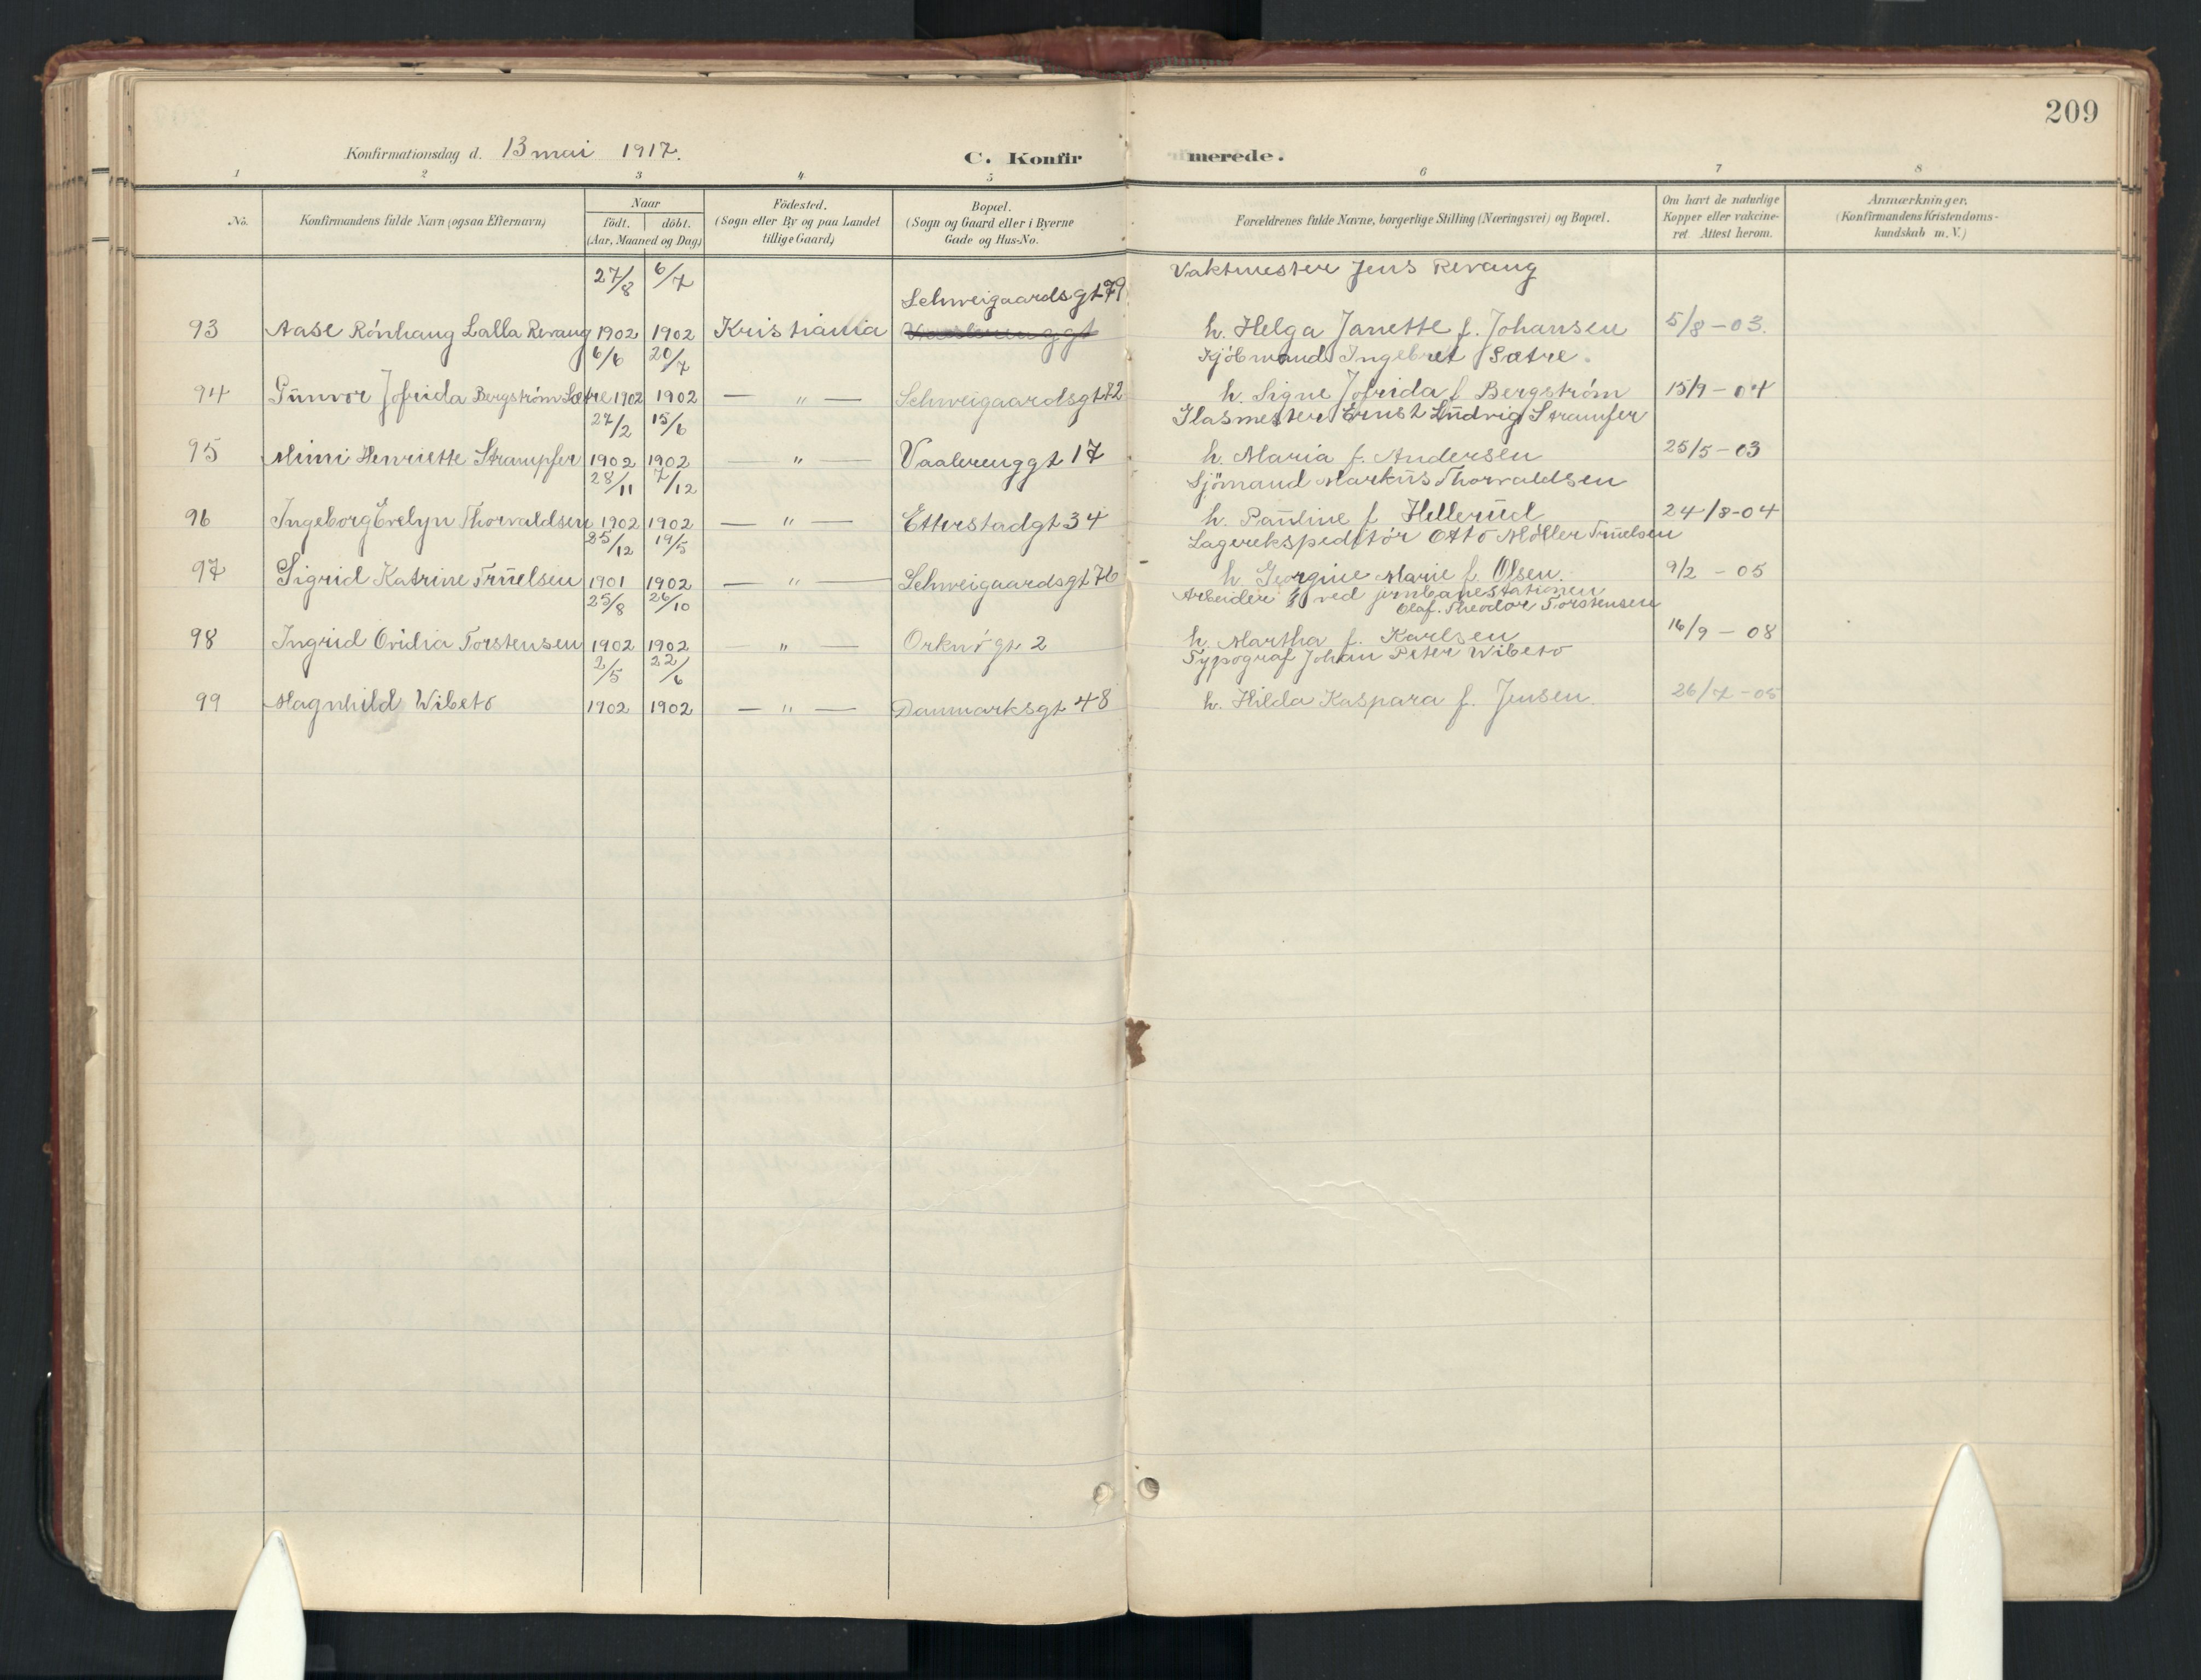 209
Konfirmationsdag d. 13 mai 1917.
C. Konfirmerede.
1 2 3 4 5 6 7 8
No.
Konfirmandens fulde Navn (ogsaa Efternavn)
Naar
födt. döbt.
(Aar, Maaned og Dag)
Födested.
(Sogn eller By og paa Landet
tillige Gaard)
Bopæl.
(Sogn og Gaard eller i Byerne
Gade og Hus-No.
Forældrenes fulde Navne, borgerlige Stilling (Næringsvei) og Bopæl.
Om havt de naturlige
Kopper eller vakcine-
ret. Attest herom.
Anmærkninger.
(Konfirmandens Kristendoms-
kundskab m. V.)
27/8 6/7 Schweigaardsgt 79 Vaktmester Jens Revaug
93 Aase Rónhaug Lalla Revaug 1902 1902 Kristiania h. Helga Janette f. Johansen 5/8 - 03.
6/6 20/7 Kjöbmand Ingebret Sætre.
94 Gunvor Jofrida Bergström Sætre 1902 1902 — " — Schweigaardsgt 82 h. Signe Jofrida f Bergström 15/9 - 04
27/2 15/6 Glasmester Ernst Ludvig Strampfer
95 Mimi Henriette Strampfer 1902 1902 " — Vaalerenggt 17 h. Maria f. Andersen 25/5 - 03
28/11 7/12 Sjömand Markus Thorvaldsen
96 Ingeborg Evelyn Thorvaldsen 1902 1902 — " — Etterstadgt 34 h. Pauline f Hellerud 24/8-04
25/12 19/5 Lagerekspeditör Otto Möller Truelsen
97 Sigrid Katrine Truelsen 1901 1902 — " — Schweigaardsgt 76 h. Georgine Marie f. Olsen. 9/2 - 05
25/8 26/10 Arbeider ved jernbanestationen
Olaf. Theodor Torstensen
98 Ingrid Ovidia Torstensen 1902 1902 — " — Orknögt 2 h. Martha f. Karlsen 16/9 - 08
2/5 22/6 Typograf Johan Peter Wibeto
99 Magnhild Wibeto 1902 1902 — " — Danmarksgt 48 h. Hilda Kaspara f. Jensen 26/7 - 05